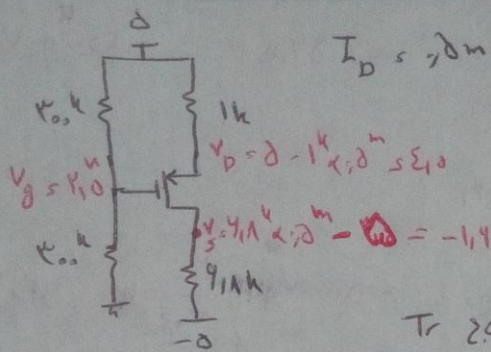 ۵
I_D = ۰٫۵m
۳۰۰k
1k
V_D = ۵ - 1^k × ۰٫۵^m = ۴٫۵
V_g = ۲٫۵^v
V_S = ۶٫۸^k × ۰٫۵^m - ۵ = -۱٫۶
۳۰۰k
۶٫۸k
-۵
Tr